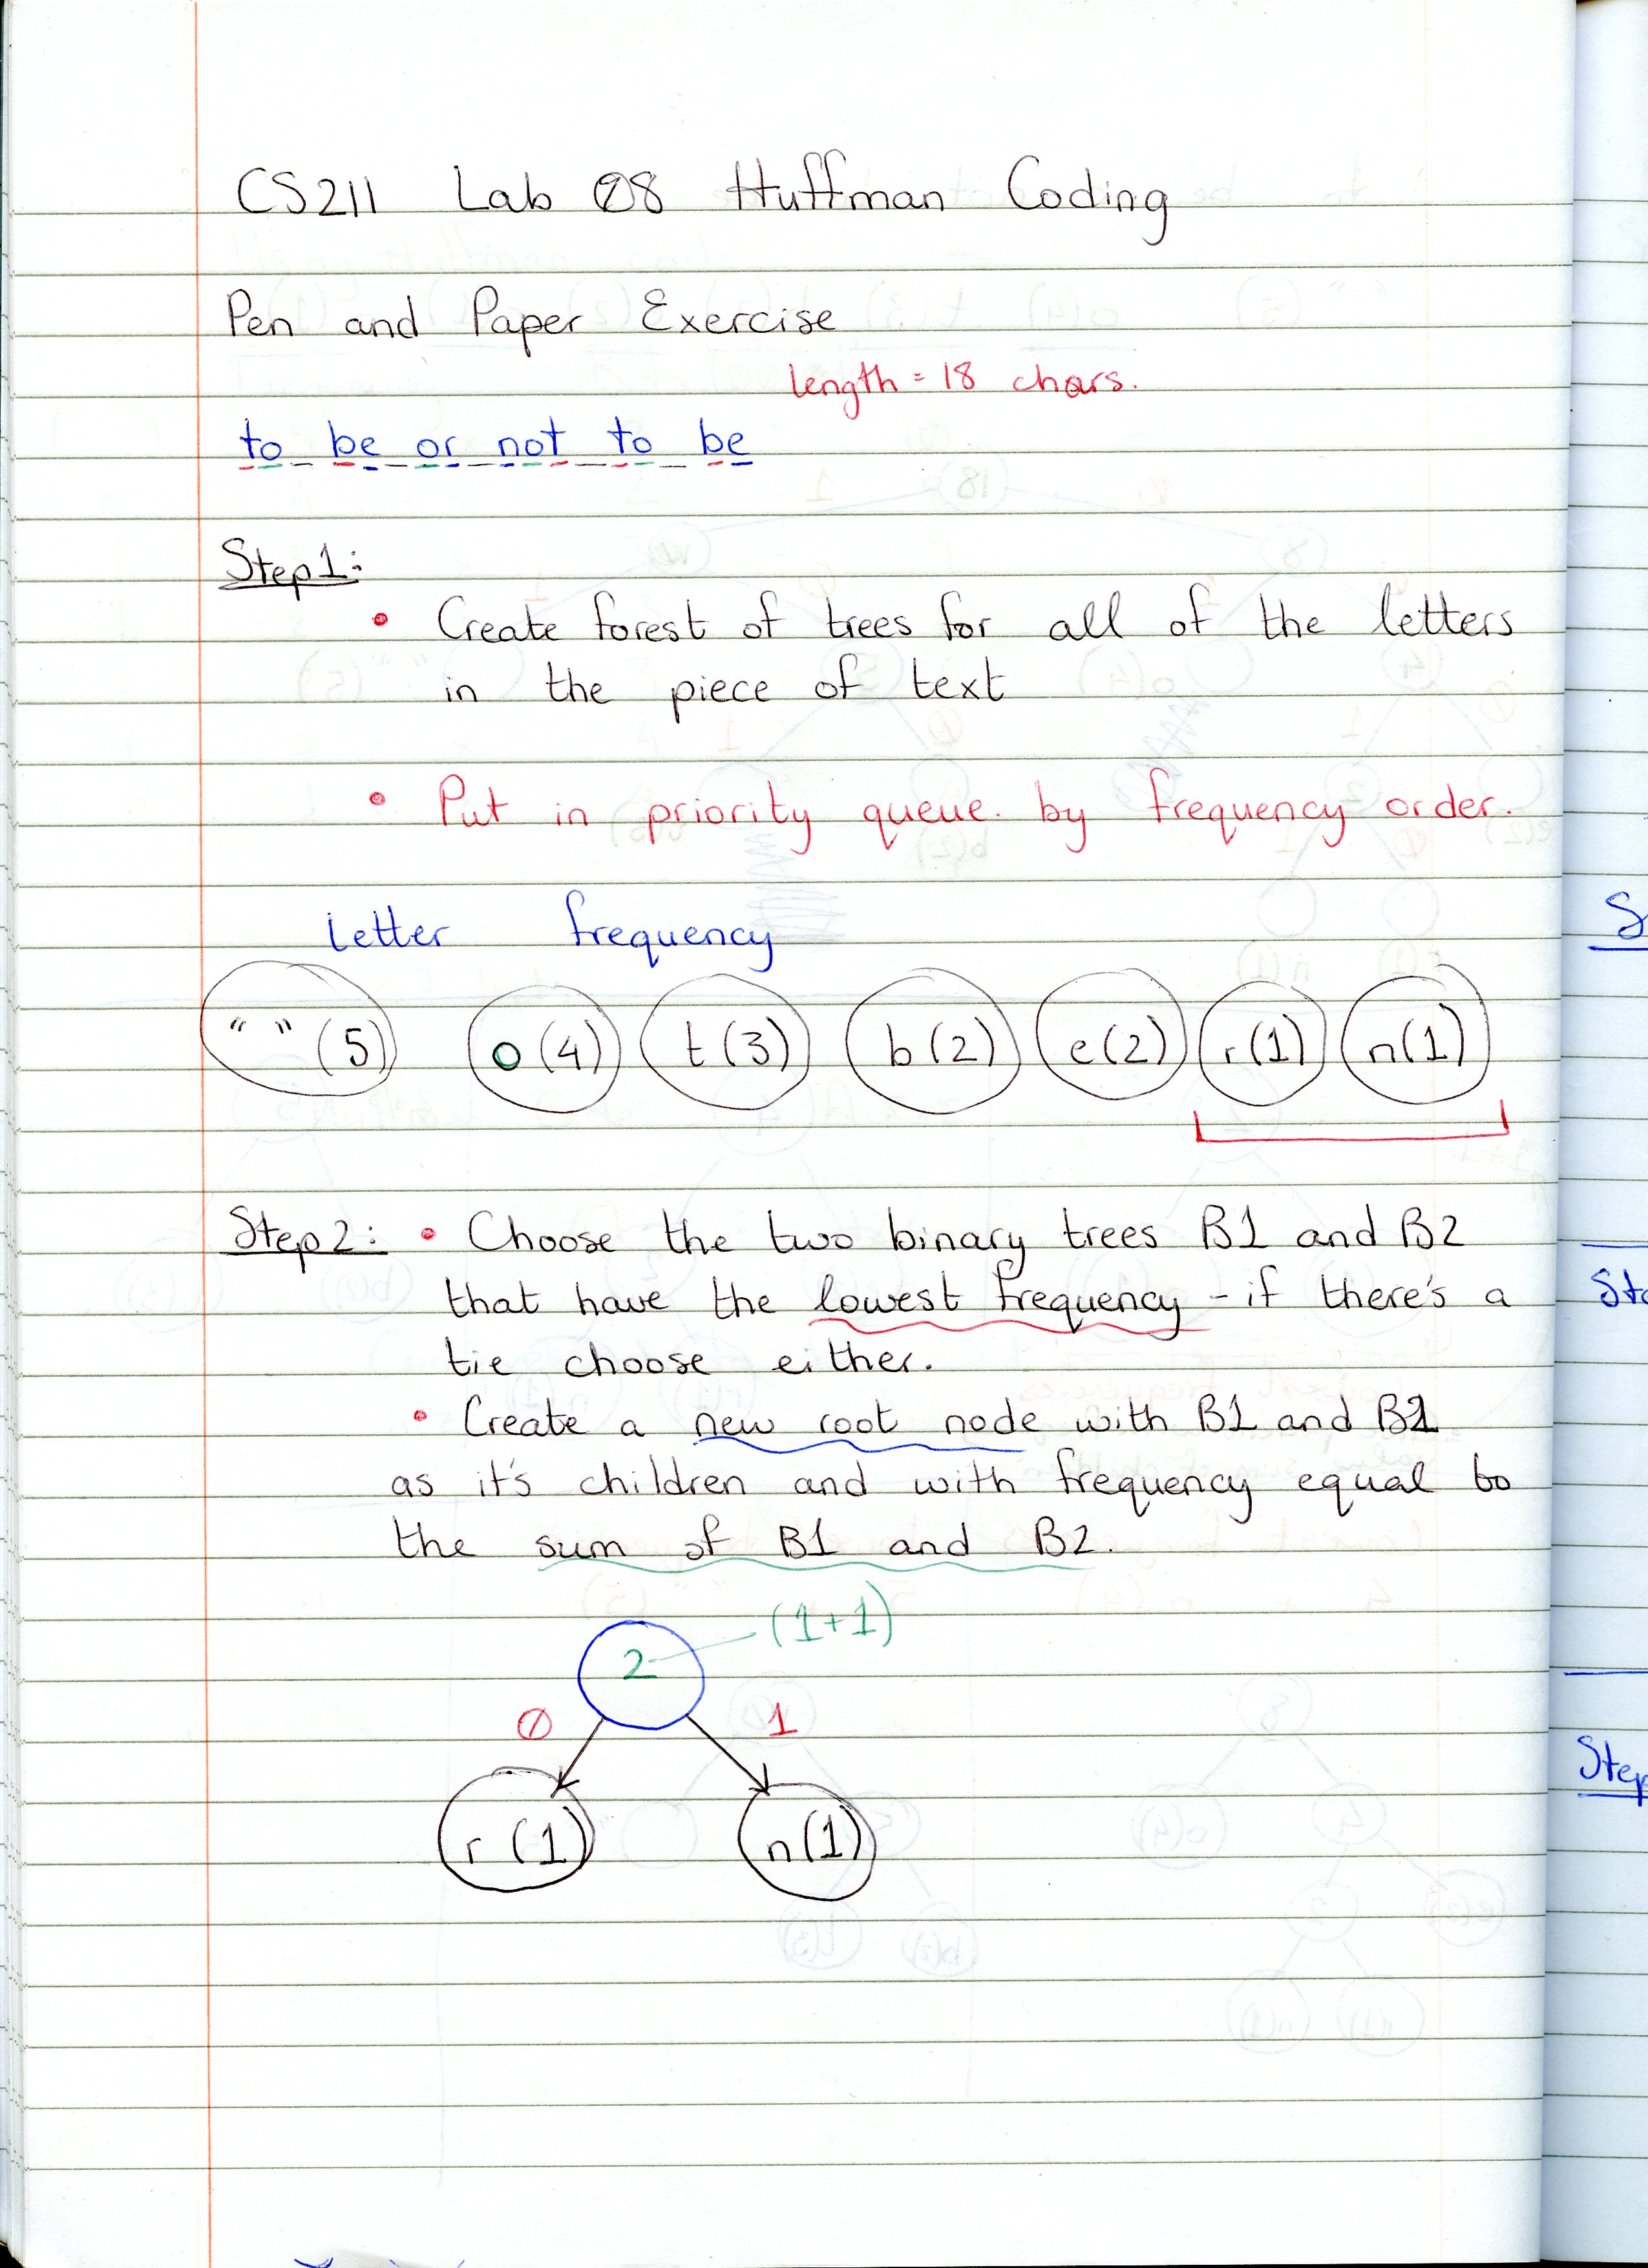 CS211 Lab 08 Huffman Coding
Pen and Paper Exercise
length = 18 chars.
to be or not to be
Step1:
• Create forest of trees for all of the letters
in the piece of text
• Put in priority queue. by frequency order.
letter frequency
" " (5) o (4) t (3) b (2) e (2) r (1) n (1)
Step2: • Choose the two binary trees B1 and B2
that have the lowest frequency - if there's a
tie choose either.
• Create a new root node with B1 and B2
as it's children and with frequency equal to
the sum of B1 and B2.
2 (1+1)
0 1
r (1) n (1)
S
Ste
Step